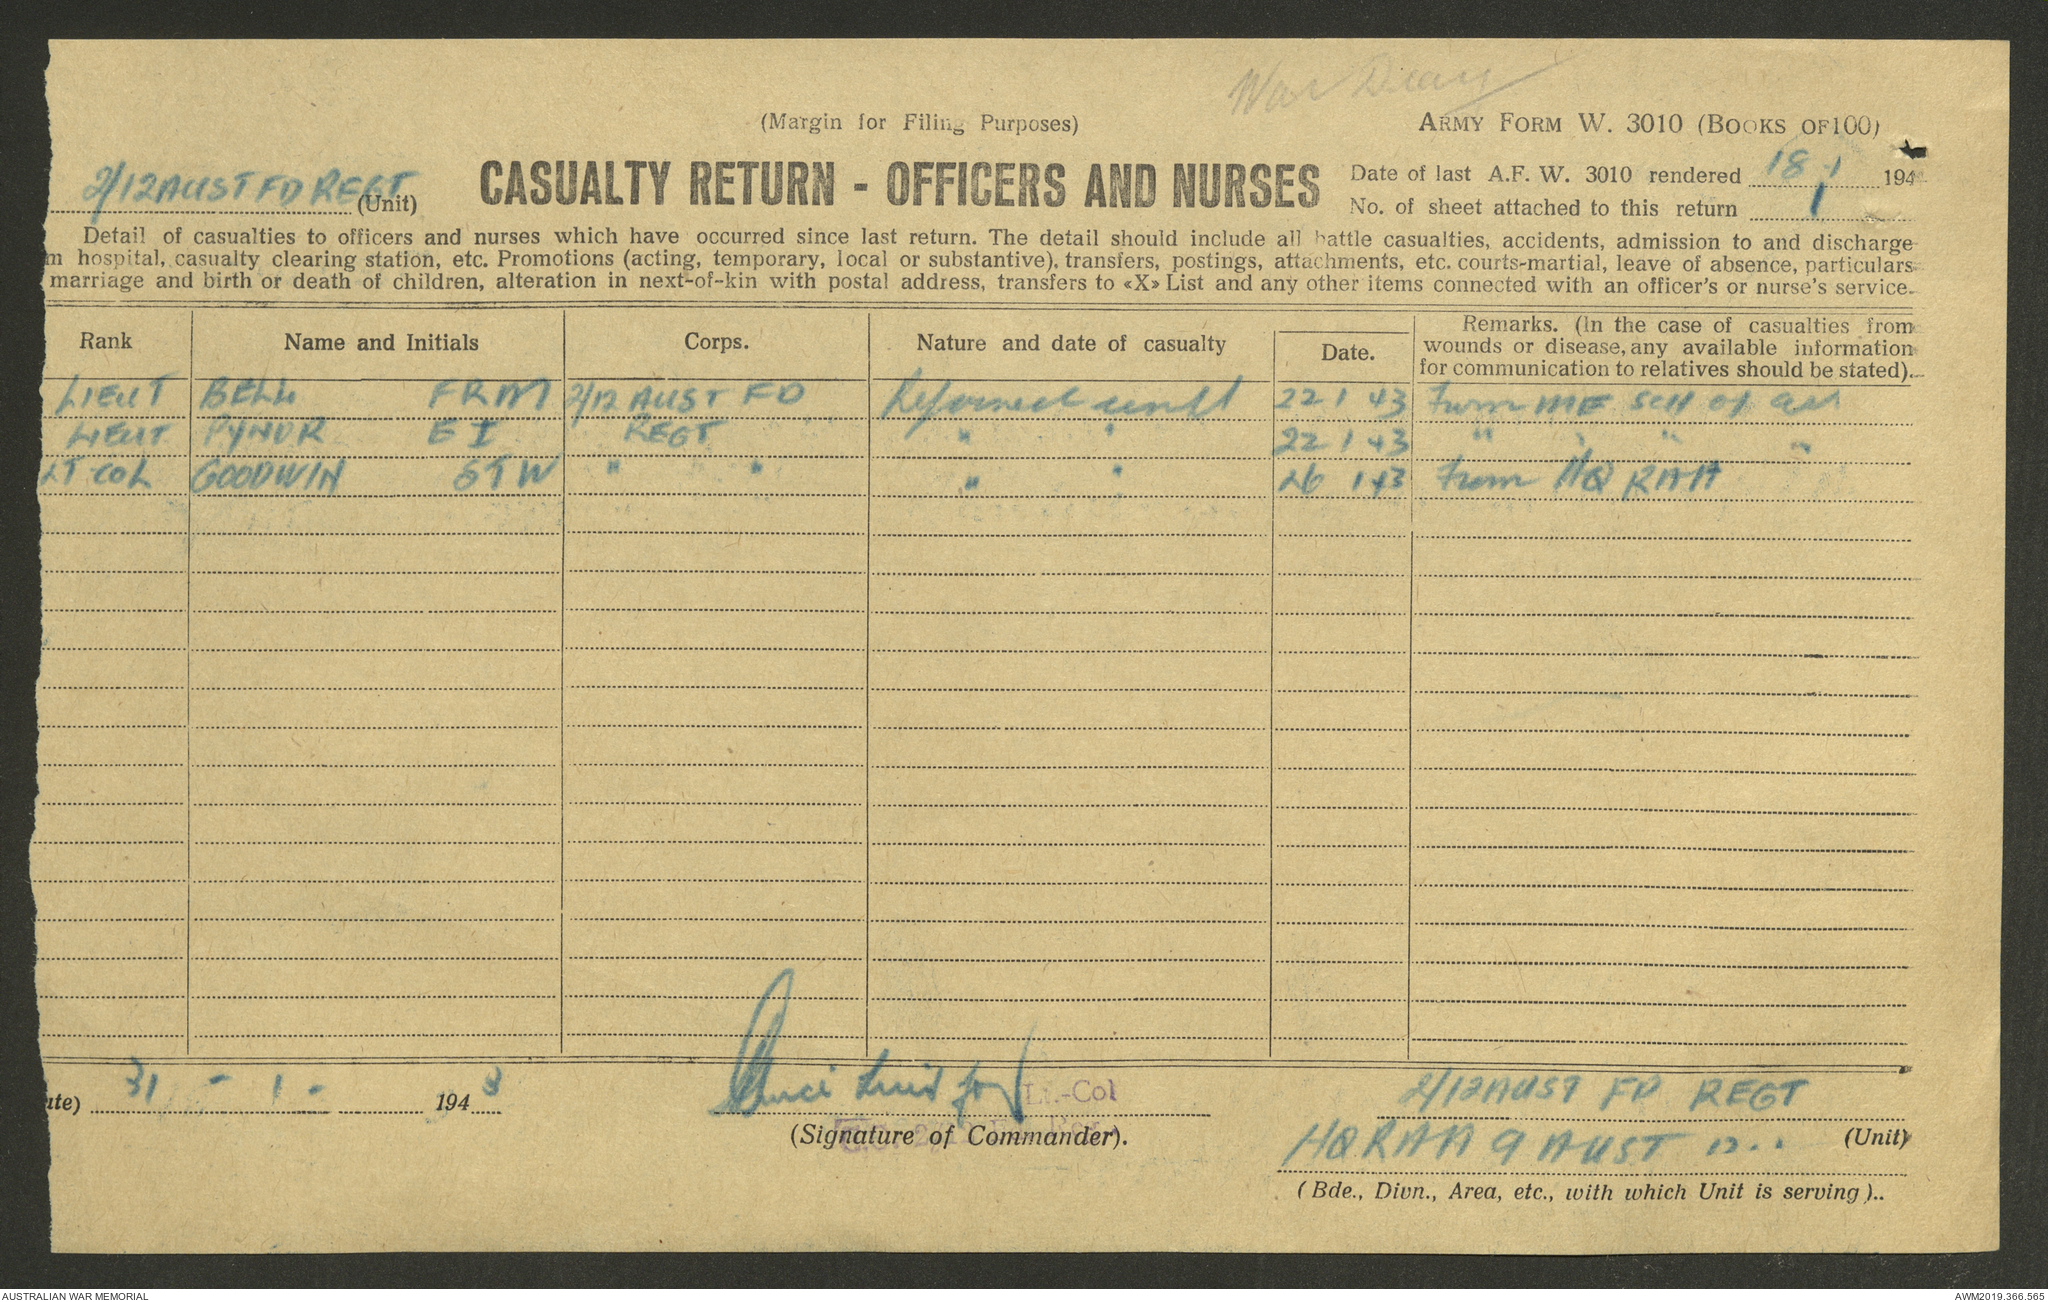 War Diary
(Margin for Filing Purposes)
ARMY FORM W. 3010 (BOOKS OF 100)
2/12 AUST FD REGT (Unit)
CASUALTY RETURN - OFFICERS AND NURSES
Date of last A.F. W. 3010 rendered 18 1 194
No. of sheet attached to this return 1
Detail of casualties to officers and nurses which have occurred since last return. The detail should include all battle casualties, accidents, admission to and discharge
m hospital, casualty clearing station, etc. Promotions (acting, temporary, local or substantive), transfers, postings, attachments, etc. courts-martial, leave of absence, particulars
marriage and birth or death of children, alteration in next-of-kin with postal address, transfers to «X» List and any other items connected with an officer's or nurse's service.
Rank Name and Initials Corps. Nature and date of casualty Date. Remarks. (In the case of casualties from
wounds or disease, any available information
for communication to relatives should be stated).
LIEUT BELL FRM 2/12 AUST FD Rejoined unit 22 1 43 From ME SCH of
LIEUT E I REGT " " 22 1 43 " " " "
LT COL GOODWIN STW " " " " 26 1 43 From HQ RAA
ate) 31 - 1 - 1943
Lt.-Col
(Signature of Commander).
2/12 AUST FD REGT
(Unit)
HQ RAA 9 AUST
(Bde., Divn., Area, etc., with which Unit is serving)..
AUSTRALIAN WAR MEMORIAL
AWM2019.366.565